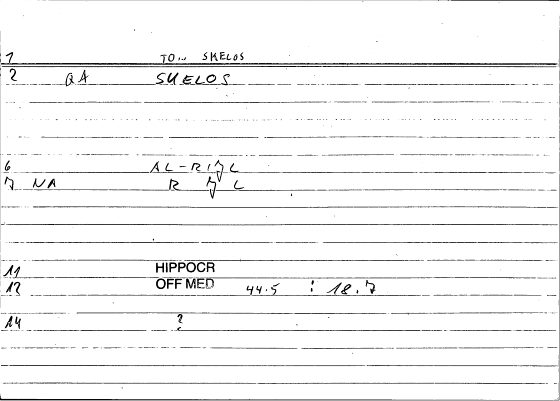 1 TON SKELOS
2 QA SKELOS
6 AL-RIJL
7 NA R J L
11 HIPPOCR
12 OFF MED 44.5 : 18.7
14 ?